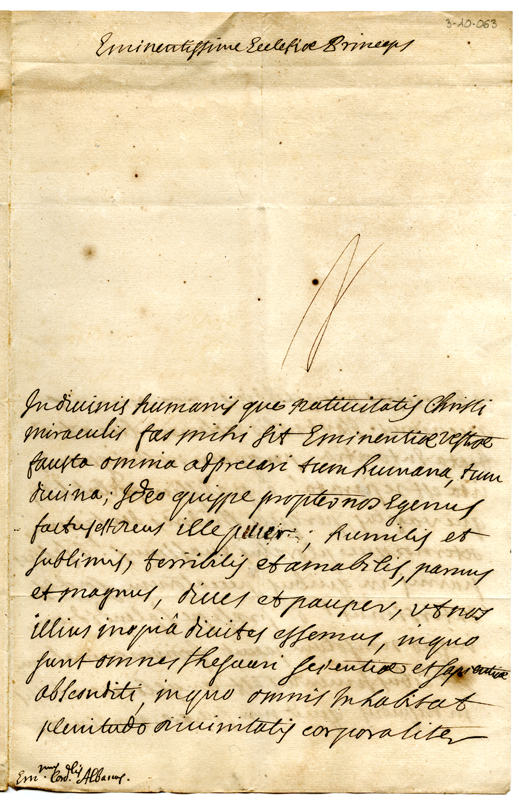 3-10-063
Eminentissime Ecclesiæ Princeps
In divinis humanis que nativitatis Christi
miraculis fas mihi sit Eminentiæ vestræ
fausta omnia adprecari tum humana, tum
divina; Ideo quippe propter nos Egenus
factus est Deus ille puer; humilis et
sublimis, terribilis et amabilis, parvus
et magnus, dives et pauper, vt nos
illius inopiâ divites essemus, in quo
sunt omnes thesauri scientiæ et sapientiæ
absconditi, in quo omnis Inhabitat
plenitudo divinitatis corporaliter
Em.mus Cord.lis Albanus.